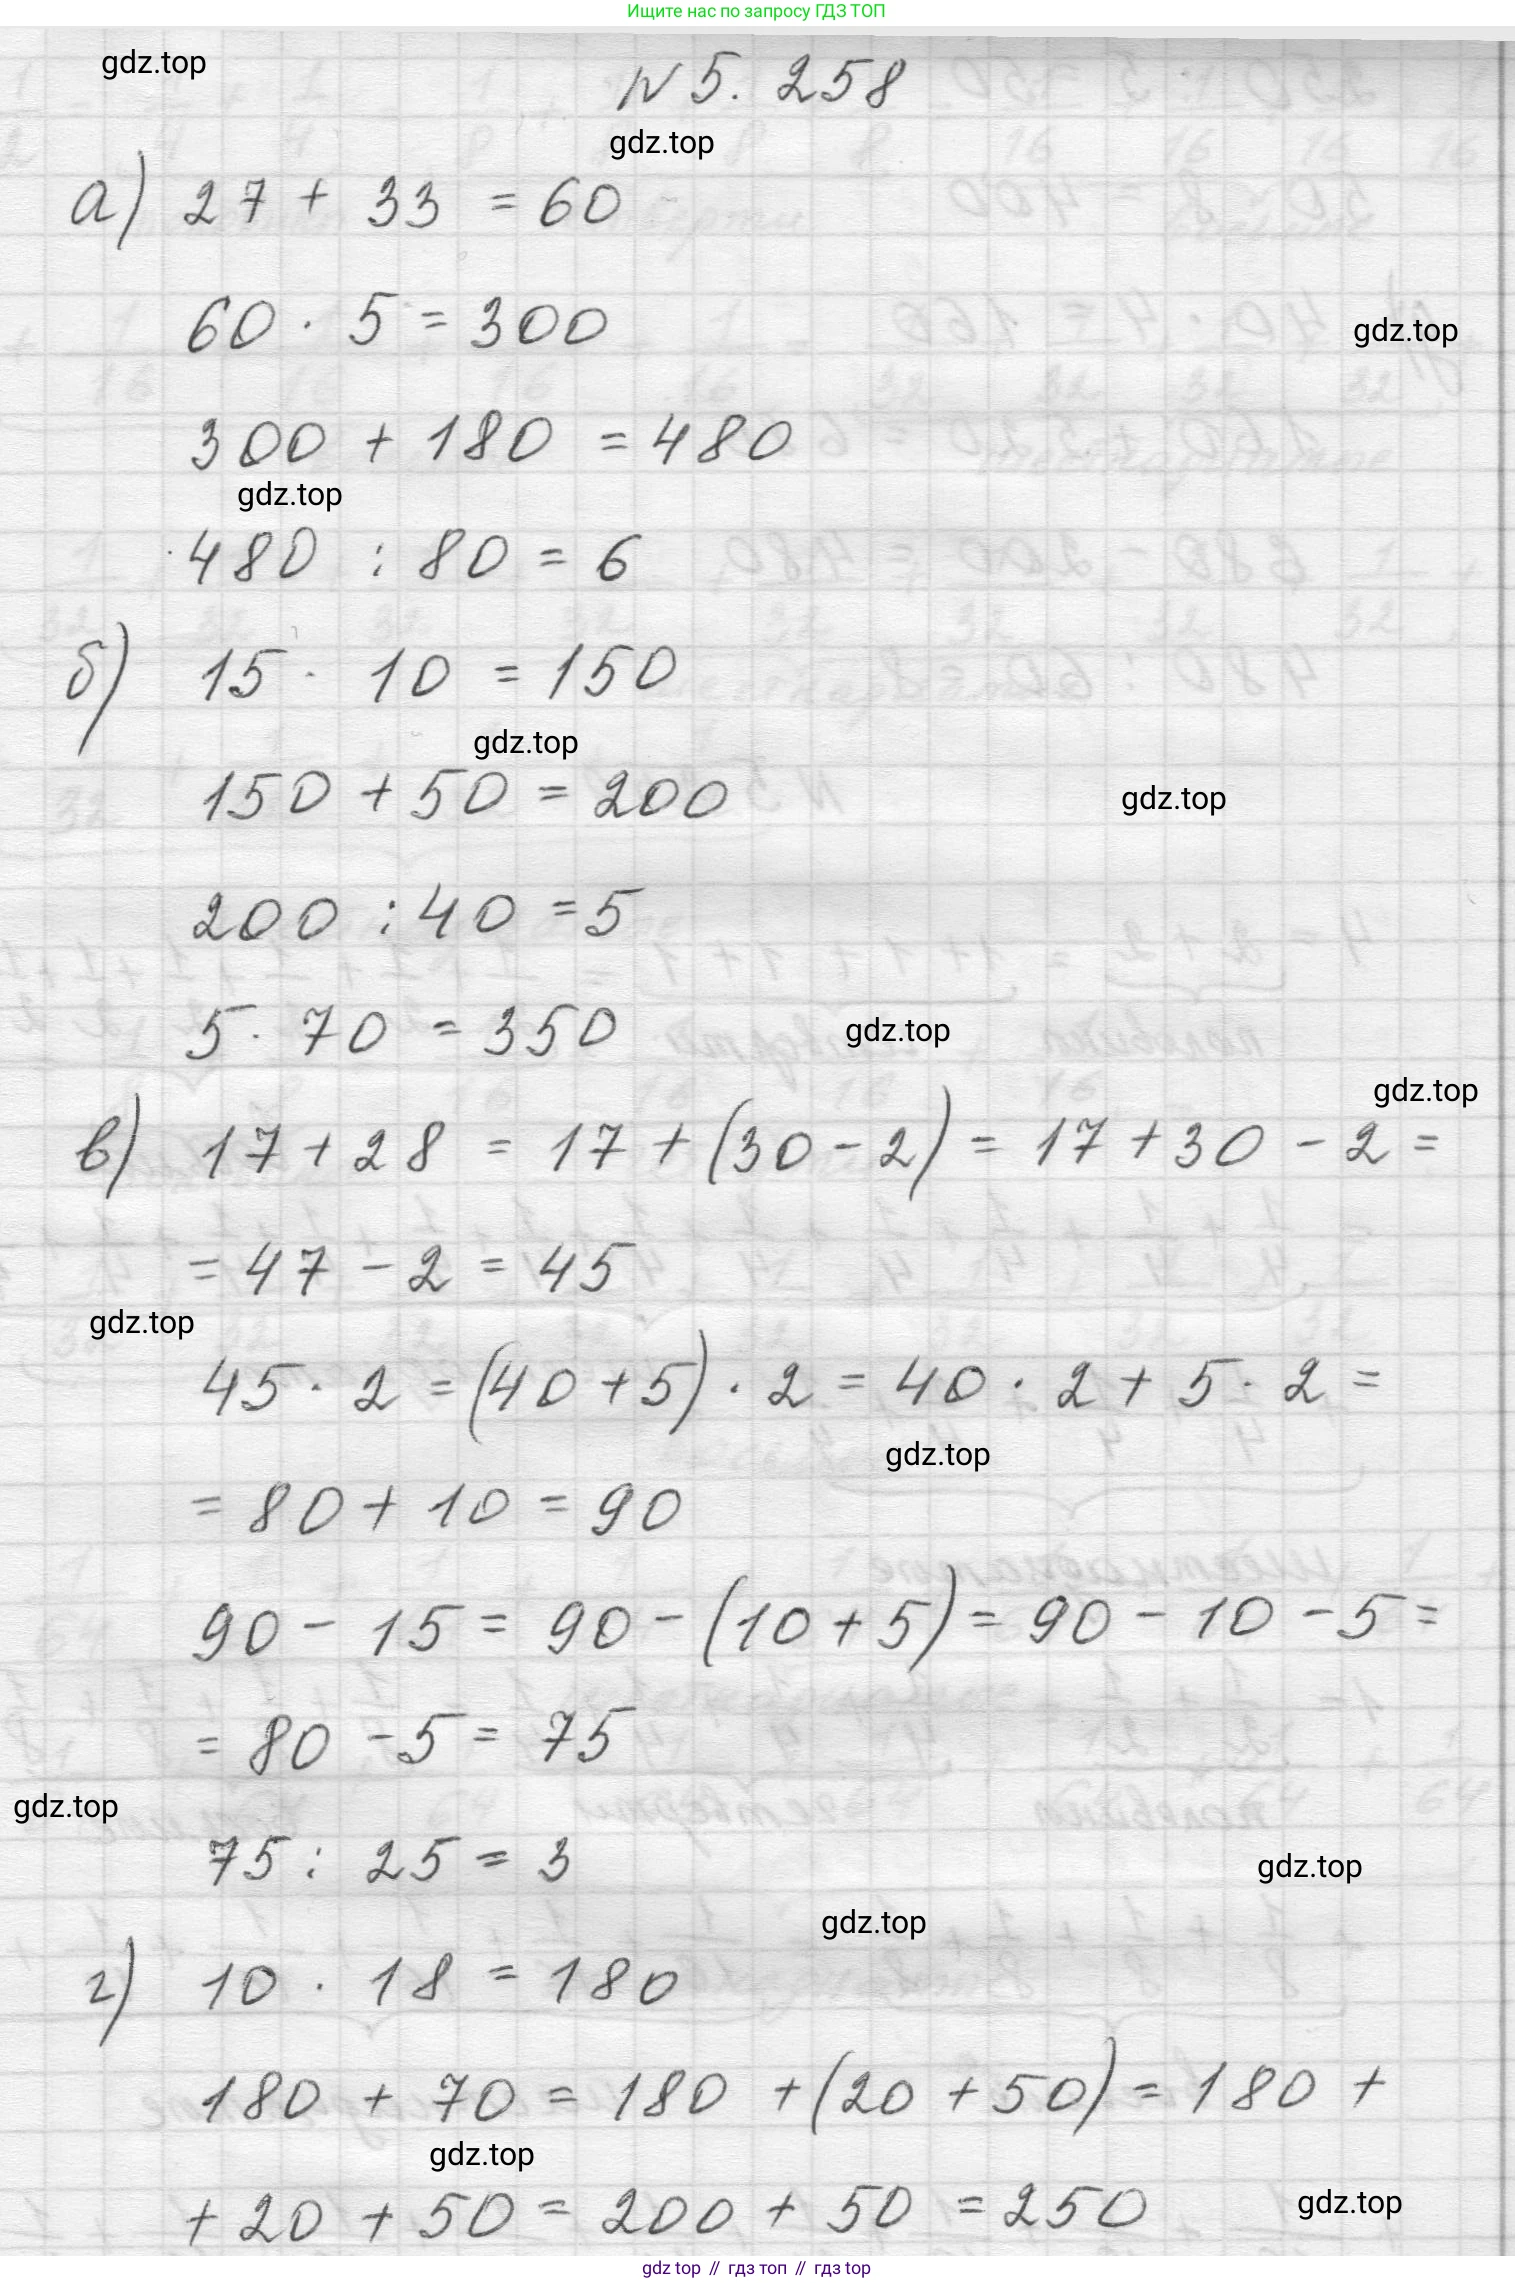 Ищите нас по запросу ГДЗ ТОП
gdz.top
N 5. 258
gdz.top
а) 27 + 33 = 60
60 · 5 = 300
gdz.top
300 + 180 = 480
gdz.top
480 : 80 = 6
б) 15 · 10 = 150
gdz.top
150 + 50 = 200
gdz.top
200 : 40 = 5
5 · 70 = 350
gdz.top
gdz.top
в) 17 + 28 = 17 + (30 - 2) = 17 + 30 - 2 =
= 47 - 2 = 45
gdz.top
45 · 2 = (40 + 5) · 2 = 40 · 2 + 5 · 2 =
gdz.top
= 80 + 10 = 90
90 - 15 = 90 - (10 + 5) = 90 - 10 - 5 =
= 80 - 5 = 75
gdz.top
75 : 25 = 3
gdz.top
gdz.top
г) 10 · 18 = 180
180 + 70 = 180 + (20 + 50) = 180 +
gdz.top
+ 20 + 50 = 200 + 50 = 250
gdz.top
gdz top // гдз топ // гдз top